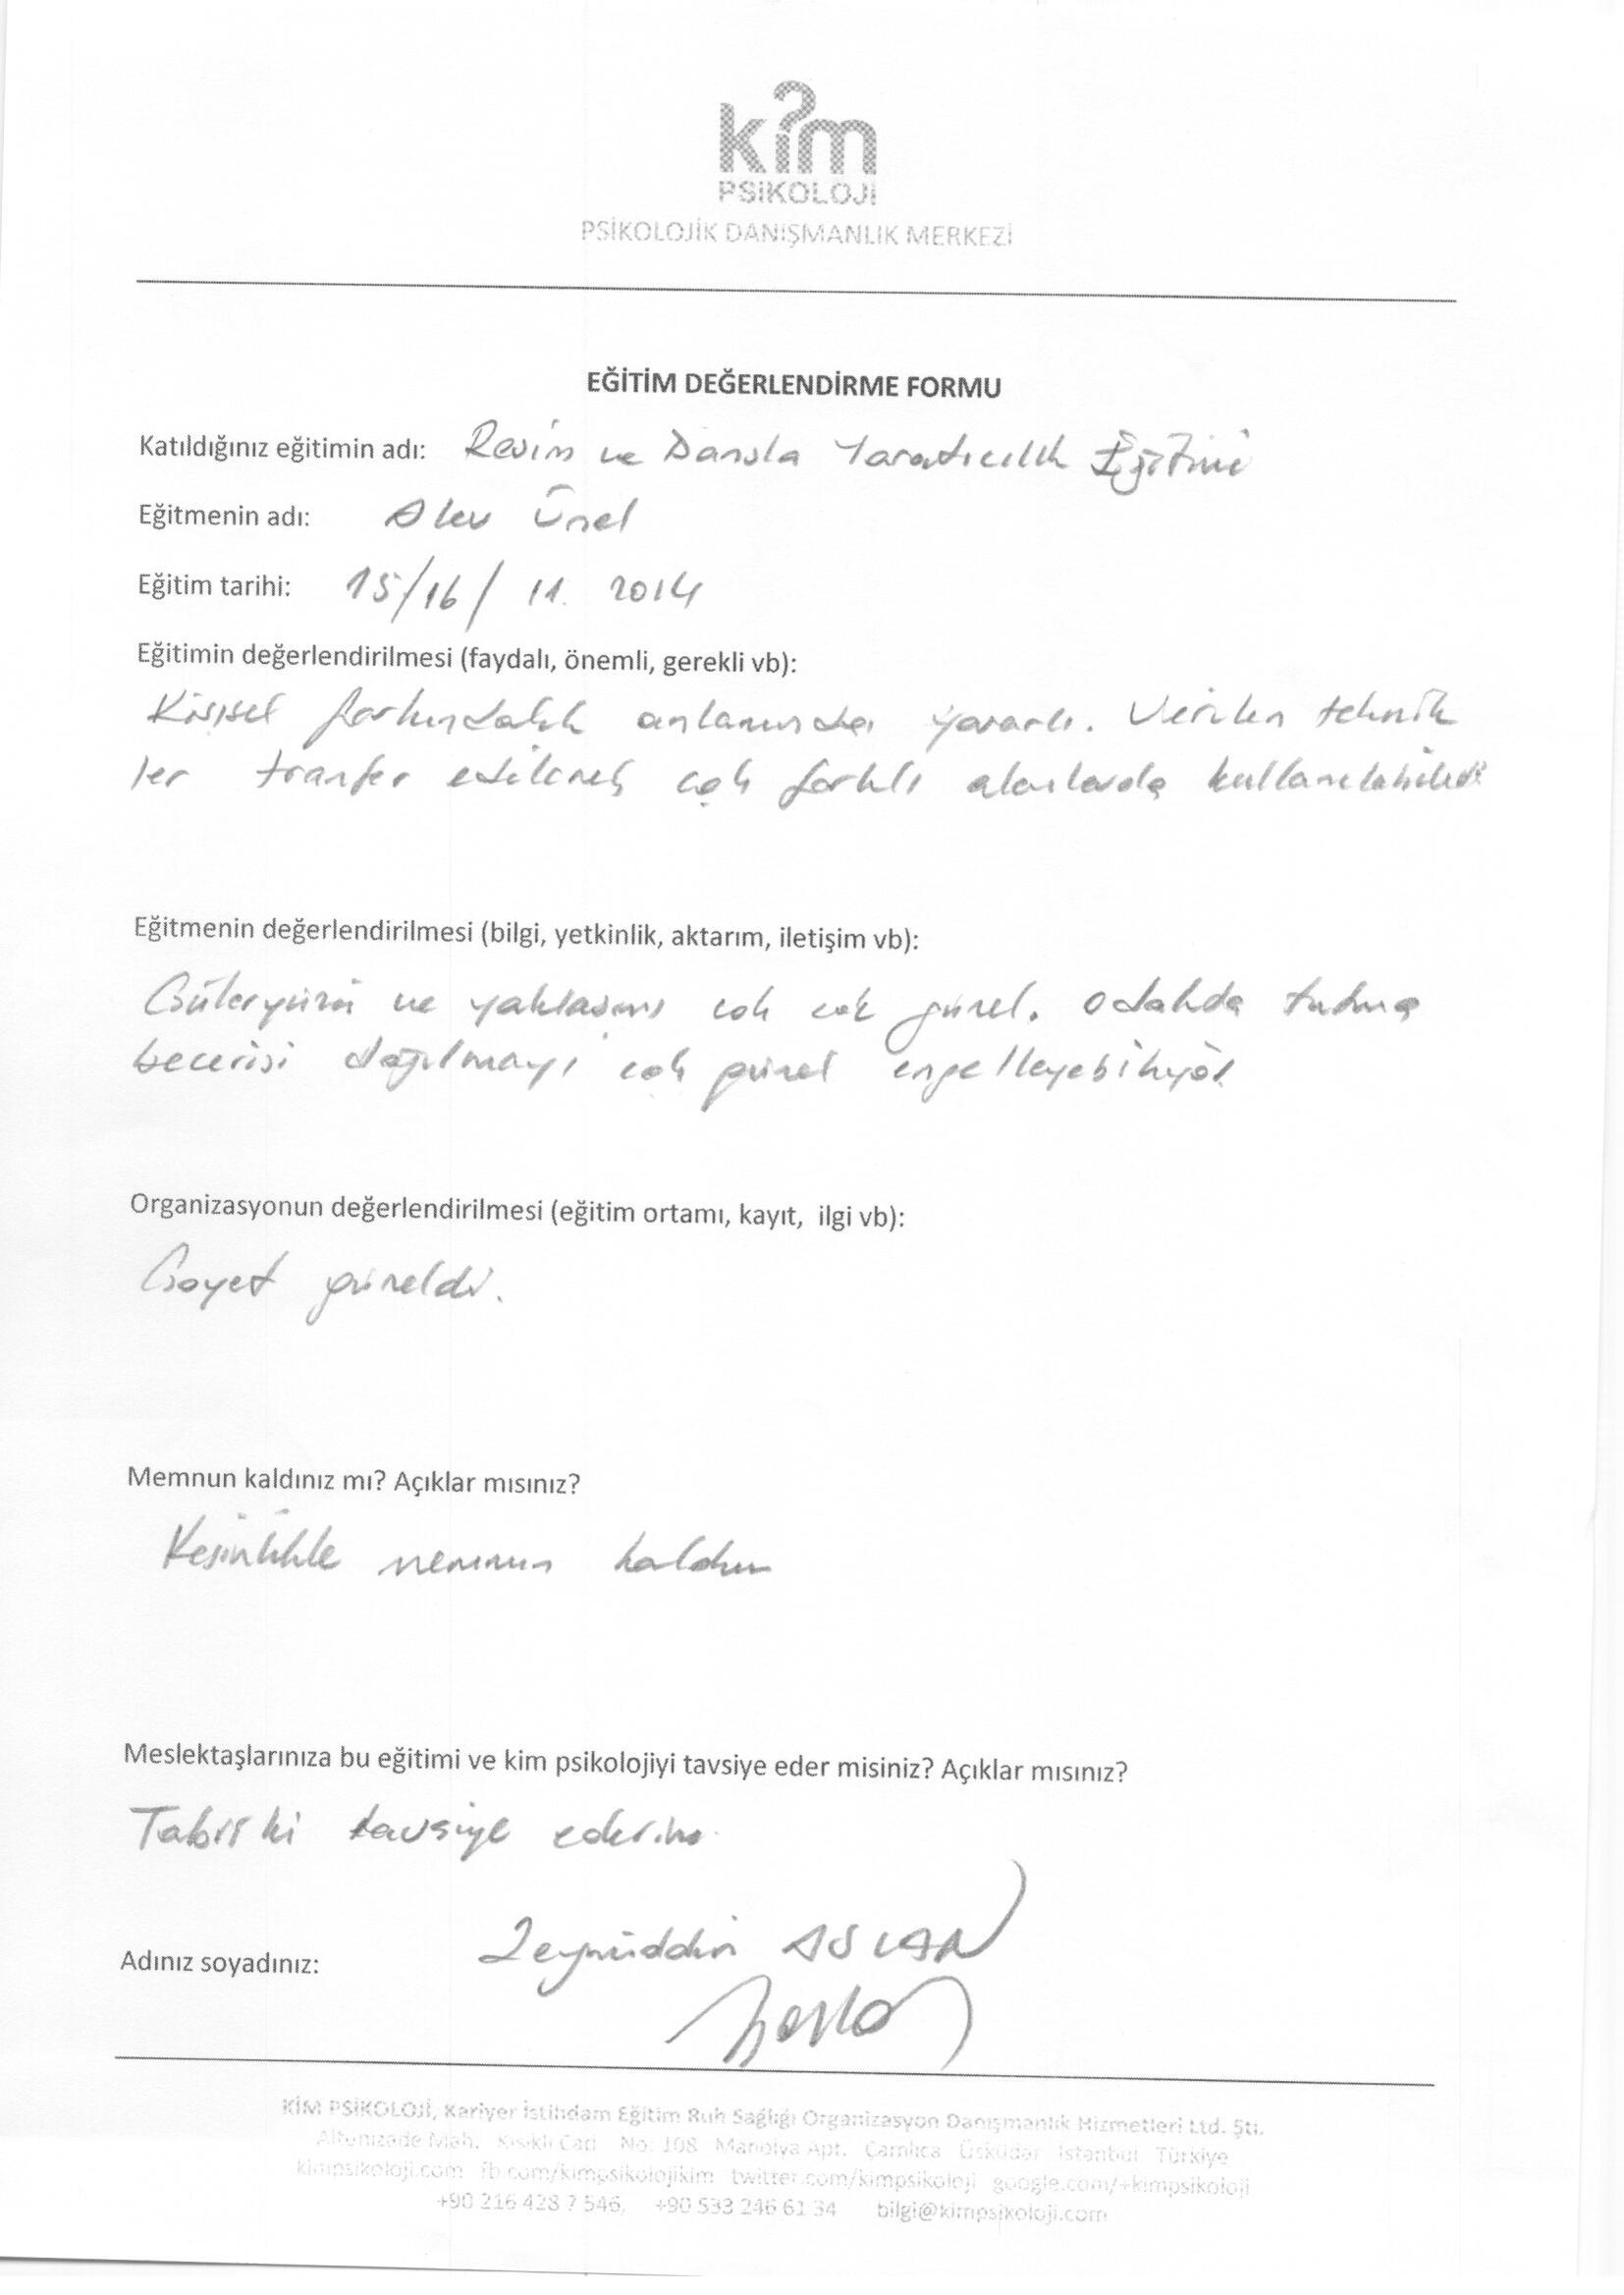 kim
PSİKOLOJİ
PSİKOLOJİK DANIŞMANLIK MERKEZİ
EĞİTİM DEĞERLENDİRME FORMU
Katıldığınız eğitimin adı: Resim ve Dansla Yaratıcılık Eğitimi
Eğitmenin adı: Alev Ünel
Eğitim tarihi: 15/16/ 11. 2014
Eğitimin değerlendirilmesi (faydalı, önemli, gerekli vb):
Kişisel farkındalık anlamında yararlı. Verilen teknik
ler tranfer edilerek çok farklı alanlarda kullanılabilir
Eğitmenin değerlendirilmesi (bilgi, yetkinlik, aktarım, iletişim vb):
Güleryüzü ve yaklaşımı çok çok güzel. Odakda tutma
becerisi dağılmayı çok güzel engelleyebiliyor
Organizasyonun değerlendirilmesi (eğitim ortamı, kayıt, ilgi vb):
Gayet güzeldi.
Memnun kaldınız mı? Açıklar mısınız?
Kesinlikle memnun kaldım
Meslektaşlarınıza bu eğitimi ve kim psikolojiyi tavsiye eder misiniz? Açıklar mısınız?
Tabii ki tavsiye ederim.
Adınız soyadınız: Zeynüddin ASLAN
KİM PSİKOLOJİ, Kariyer İstihdam Eğitim Ruh Sağlığı Organizasyon Danışmanlık Hizmetleri Ltd. Şti.
Altunizade Mah. Kısıklı Cad No: 108 Manolya Apt. Çamlıca Üsküdar İstanbul Türkiye
kimpsikoloji.com fb.com/kimpsikolojikim twitter.com/kimpsikoloji google.com/+kimpsikoloji
+90 216 428 7 546, +90 533 246 61 34 bilgi@kimpsikoloji.com